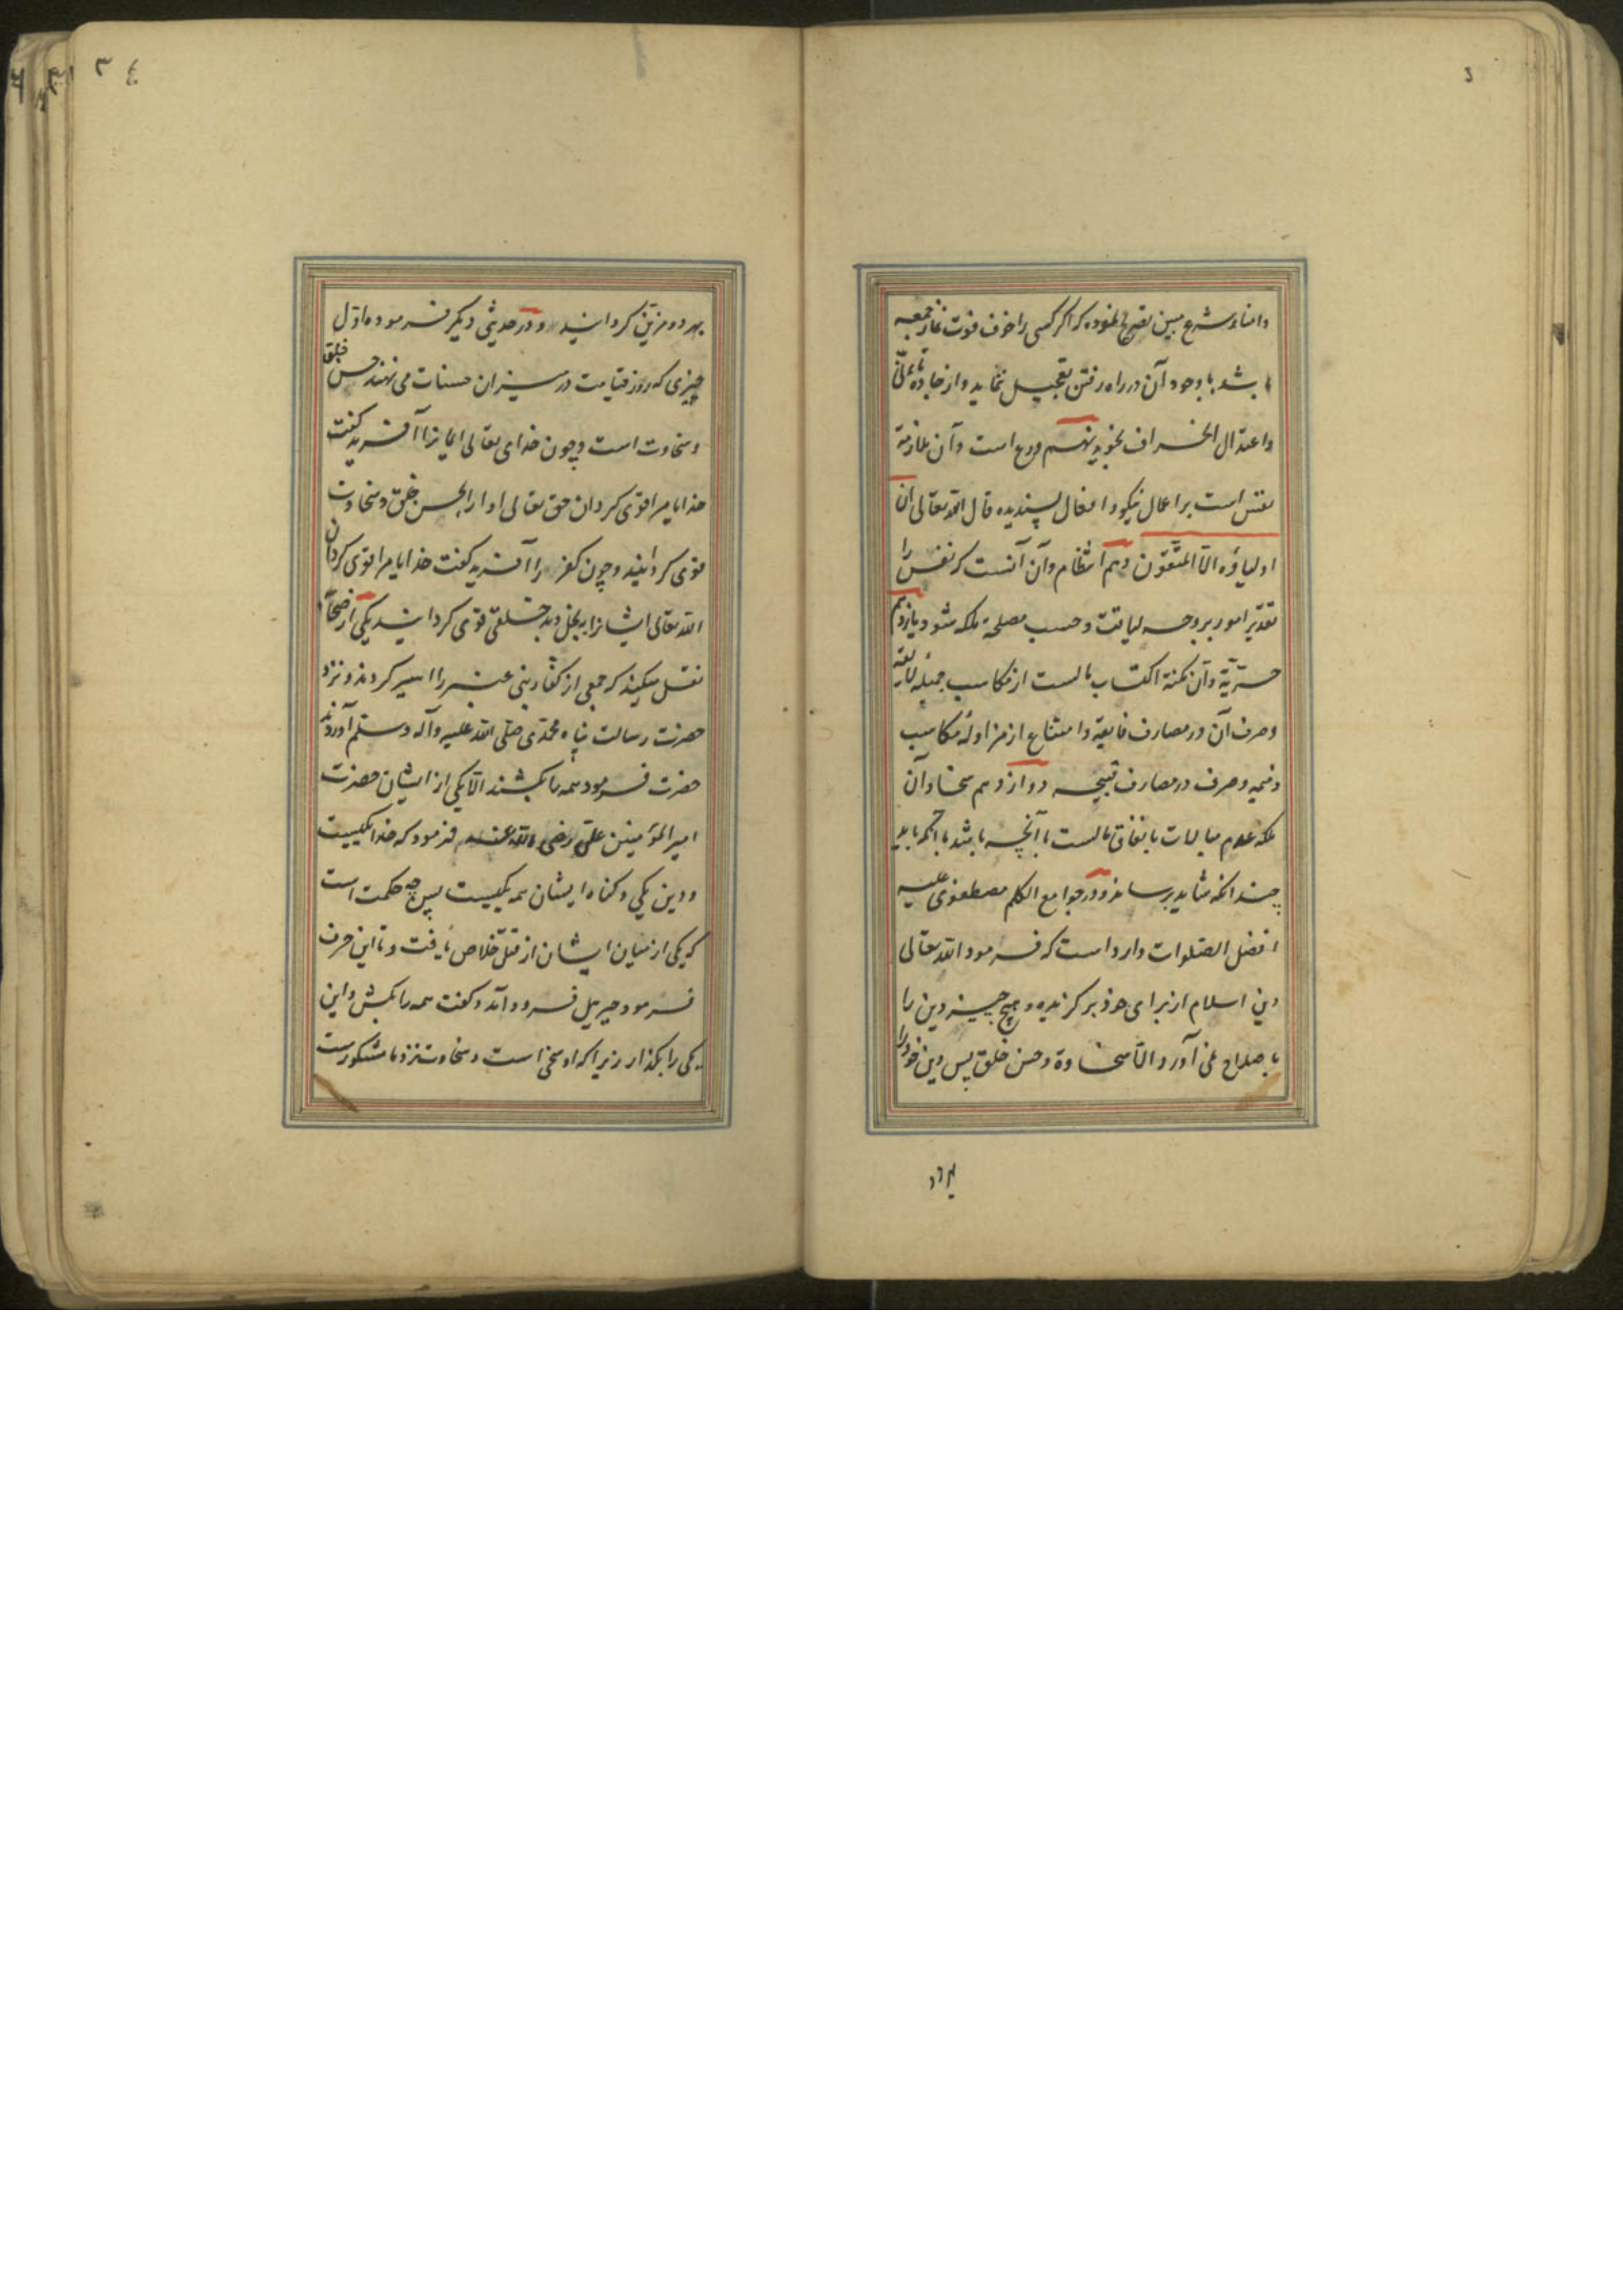 وامناء شرع مبین تصریح نموده که اگر کسی را خوف فوت نماز جمعه
باشد باوجود آن در راه رفتن تعجیل ننماید و از جاده تأنی
واعتدال انحراف نجوید نهم ورع است و آن ملازمة
نفس است بر اعمال نیکو و افعال پسندیده قال الله تعالی ان
اولیاؤه الّا المتّقون دهم انتظام و آن آنست که نفس را
تقدیر امور بر وجه لیاقت و حسب مصلحة ملکه شود یازدهم
حرّیّة و آن تمکنة اکتساب مالست از مکاسب جمیله لایقه
وصرف آن در مصارف فایقة و امتناع از مزاولهٔ مکاسب
ذمیمه و صرف در مصارف قبیحه دوازدهم سخا و آن
ملکه عدم مبالات بانفاق مالست تا آنچه باشد بآنکه باید
چندانکه شاید برساند و در جوامع الکلم مصطفوی علیه
افضل الصّلوات وارد است که فرمود الله تعالی
دین اسلام از برای خود برگزیده و هیچ چیز دین را
باصلاح نمی آورد الّا سخاوة و حسن خلق پس دین خود را
بهر دو
۳۴
بهر دو مزیّن گردانید و در حدیثی دیگر فرموده اوّل
چیزی که روز قیامت در میزان حسنات می نهند حسن خلق
و سخاوت است و چون خدای تعالی ایمانرا آفرید گفت
خدایا مرا قوی گردان حق تعالی او را بحسن خلق و سخاوت
قوی گردانید و چون کفر را آفرید گفت خدایا مرا قوی گردان
الله تعالی ایشانرا به بخل و بد خلقی قوی گردانید یکی از صحابه
نقل میکند که جمعی از کفّار بنی عنبر را اسیر کردند و نزد
حضرت رسالت پناه محمّدی صلّی الله علیه وآله وسلّم آوردند
حضرت فرمود همه را بکشند الّا یکی از ایشان حضرت
امیر المؤمنین علی رضی الله عنه فرمود که خدا یکیست
و دین یکی و گناه ایشان همه یکیست پس چه حکمت است
که یکی از میان ایشان از قتل خلاص یافت و تا این حرف
فرمود جبریل فرود آمد و گفت همه را بکش و این
یکی را بگذار زیرا که او سخی است و سخاوت نزد ما مشکورست